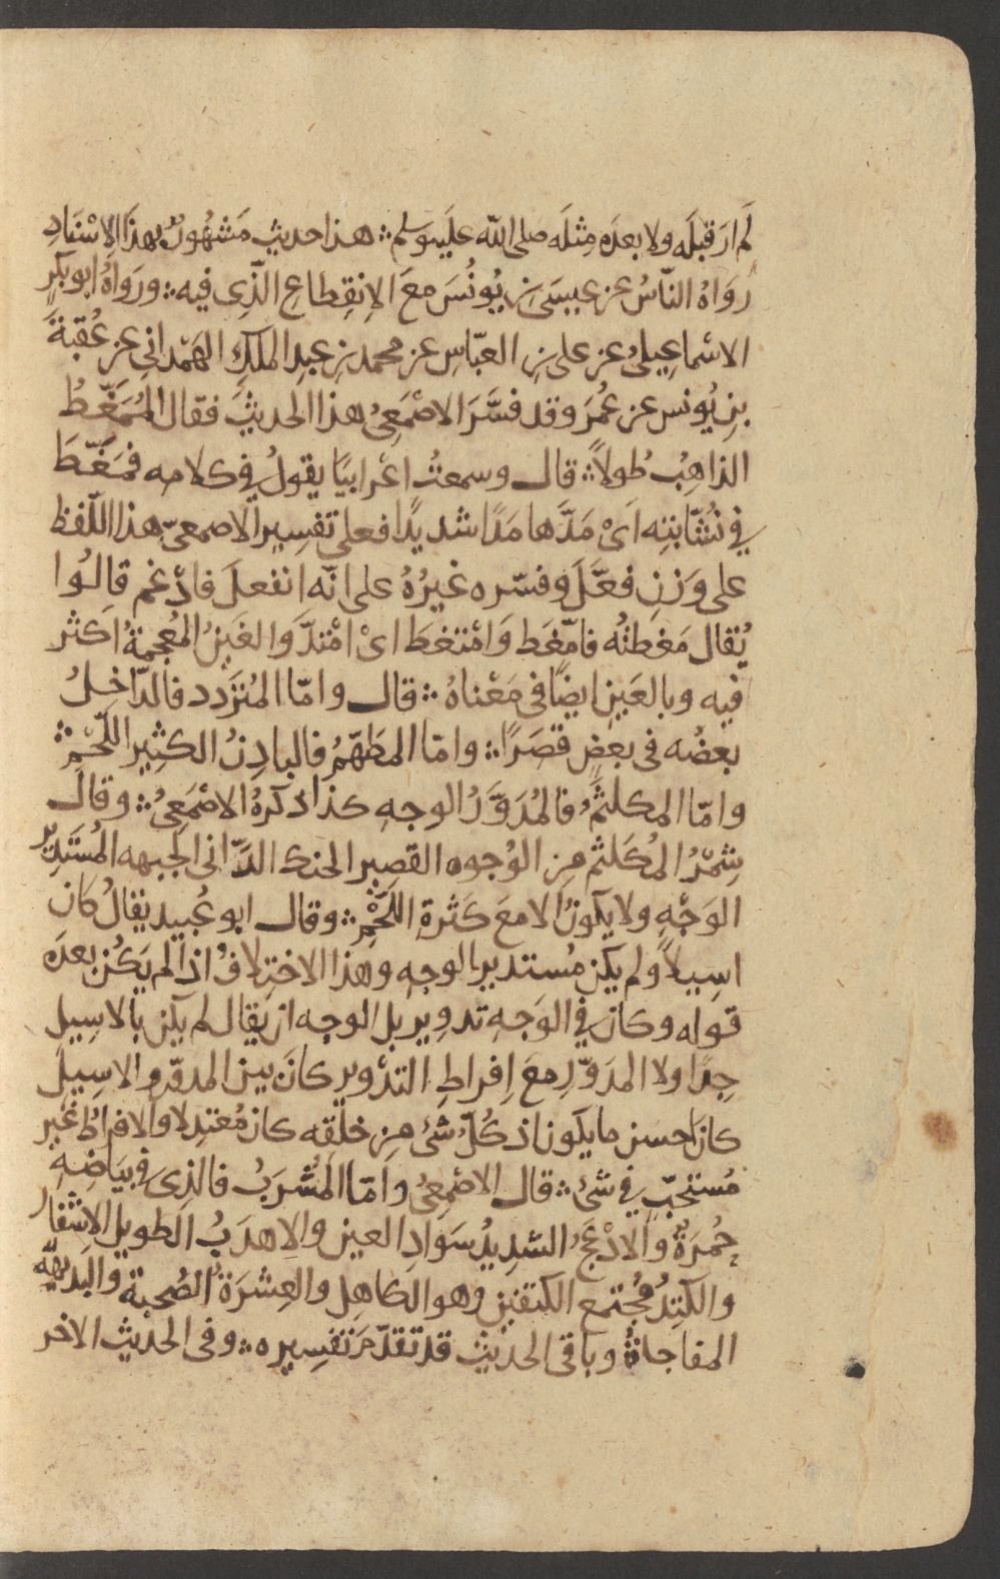 لَم ارَ قبلَه ولا بعدَه مِثلَه صلى الله عليه وسلم ؞ هذا حديث مَشهُورٌ بهذا الاِسْنَادِ
رَوَاهُ النّاسُ عن عيسَى بنِ يُونُسَ معَ الاِنقِطاعِ الّذِى فيه ؞ ورَوَاهُ ابو بكرٍ
الاسْماعِيلىُ عن على بنِ العبّاسِ عن محمد بنِ عبدِ الملكِ الهَمْدانى عن عُقبَةَ
بنِ يُونس عن عُمَرَ وقد فسَّرَ الاصْمَعِىُ هذا الحديثَ فقال المُمَغّطُ
الذاهِبُ طُولاً ؞ قال وسمعتُ اعْرابيًا يقولُ فى كلامِه فمَغّطَ
فى نُشّابتِه اىْ مَدَّها مَدًا شديدًا فعلى تفسِير الاصمعىّ هذا اللّفظ
على وَزنِ فعَّلَ وفسّره غيرُهُ على انّه انفعلَ فادّغم قالُوا
يُقال مَغطتُه فامّغَط وَامْتغَط اىْ امْتدَّ وَالغَينُ المُعجمةُ اكثر
فيه وبالعَين ايضًا فى مَعْناهُ ؞ قال وامّا المُتَرَدد فالدّاخِلُ
بعضُه فى بعضٍ قصَرًا ؞ وامّا المطَهّمُ فالبادِنُ الكثِير اللّحْمِ ؞
وامّا المكلثَمُ فالمُدَوَّرُ الوجهِ كذا ذكرهُ الاصْمَعِىُ ؞ وقالَ
شِمْرُ المُكَلثَم مِن الوُجوه القصِير الحنك الدّانى الجبهه المُستَدِير
الوَجْهِ ولا يكونُ الا معَ كَثرةِ اللّحْمِ ؞ وقال ابو عُبيد يقالُ كانَ
اسِيلاً ولم يكن مُستديرَ الوجهِ وهذا الاختِلافُ اذا لم يَكُن بعدَه
قوله وكان فى الوَجهِ تدوِير بل الوجه ان يقال لم يكن بالاسِيل
جِدًا ولا المدَوّرِ معَ اِفراطِ التدْوير كانَ بين المدوّر والاسِيل
كان احسن ما يكون اذ كلُّ شئ مِن خلقه كان مُعتدِلا والافراطُ غير
مُستحَبّ فى شئ ؞ قال الاصْمعِىُ وامّا المُشْرَبُ فالذِى فى بَيَاضِه
حُمرَةٌ والادْعَجُ الشدِيدُ سَوَادِ العين والاهدَبُ الطويل الاشفار
والكَتِدُ مُجتمع الكتفين وهو الكاهِل والعِشْرَةُ الصُحبة والبَديهَه
المفاجاةُ وباقى الحديث قد تقدّمَ تفسِيره ؞ وفى الحديث الاخر